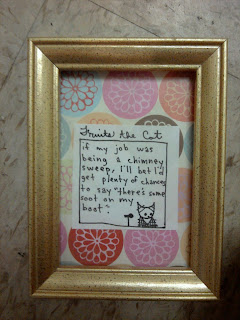 Fruits the Cat
if my job was
being a chimney
sweep, I'll bet I'd
get plenty of chances
to say "there's some
soot on my
boot".